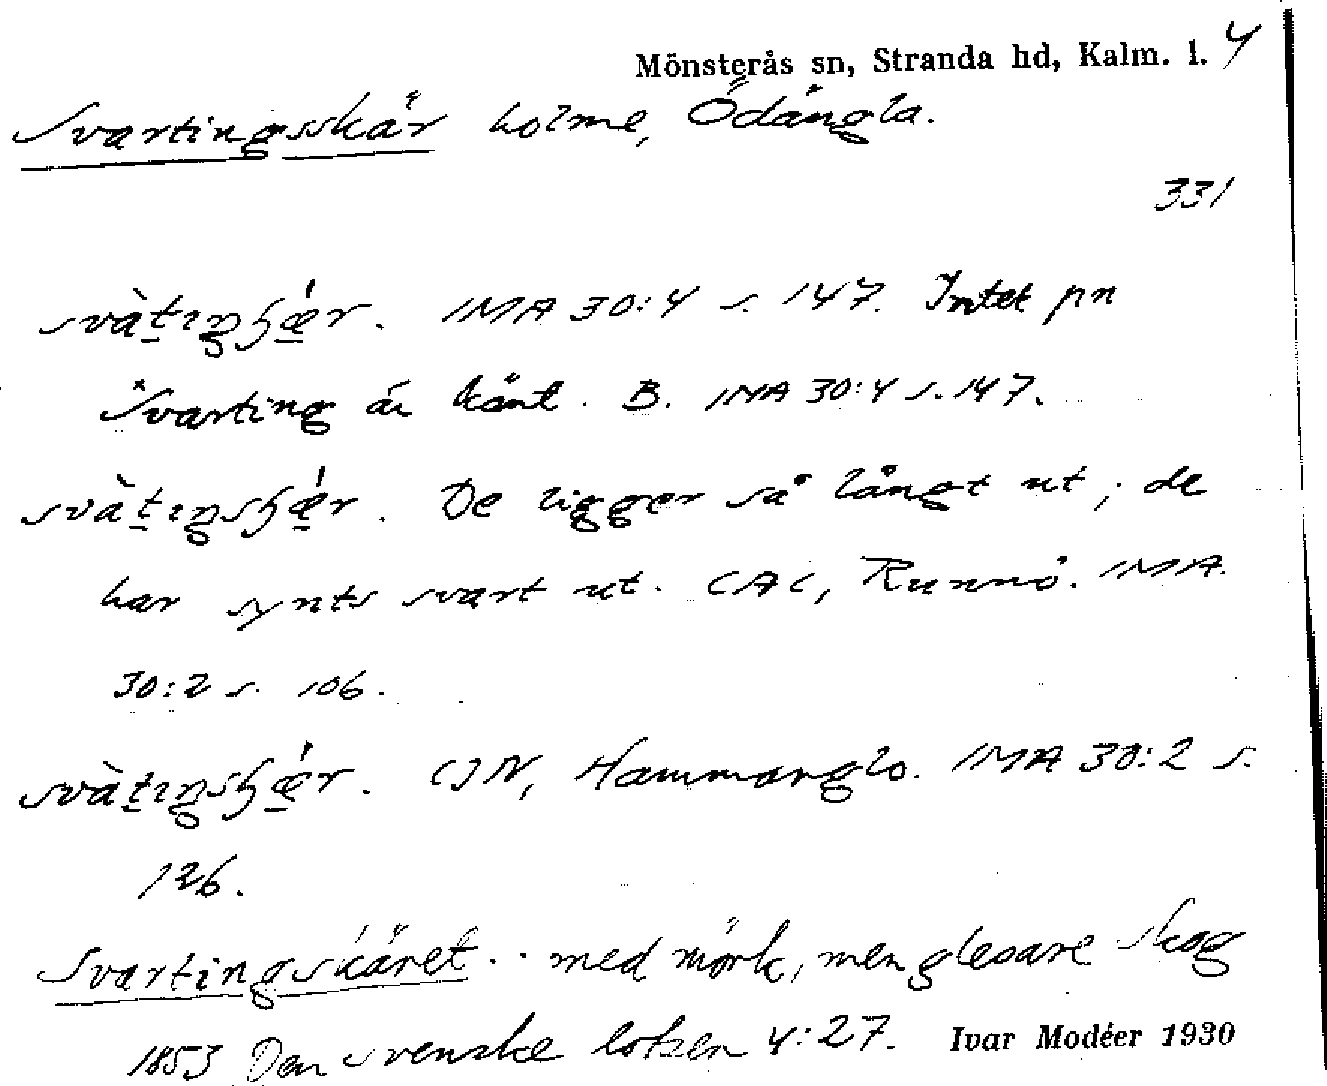 Mönsterås sn, Stranda hd, Kalm. l. 4
Svartingsskär holme, Ödängla.
331
svàtıŋʃǽr. IMA 30:4 s. 147. Intet pn
Svarting är känt. B. IMA 30:4 s. 147.
svàtıŋsʃǽr. De ligger så långt ut, de
har synts svart ut. CAC, Runnö. IMA
30:2 s. 106.
svàtıŋsʃǽr. CJN, Hammarglo. IMA 30:2 s.
126.
Svartingskäret .. med mörk, men glesare skog
1853 Den svenske lotsen 4:27. Ivar Modéer 1930